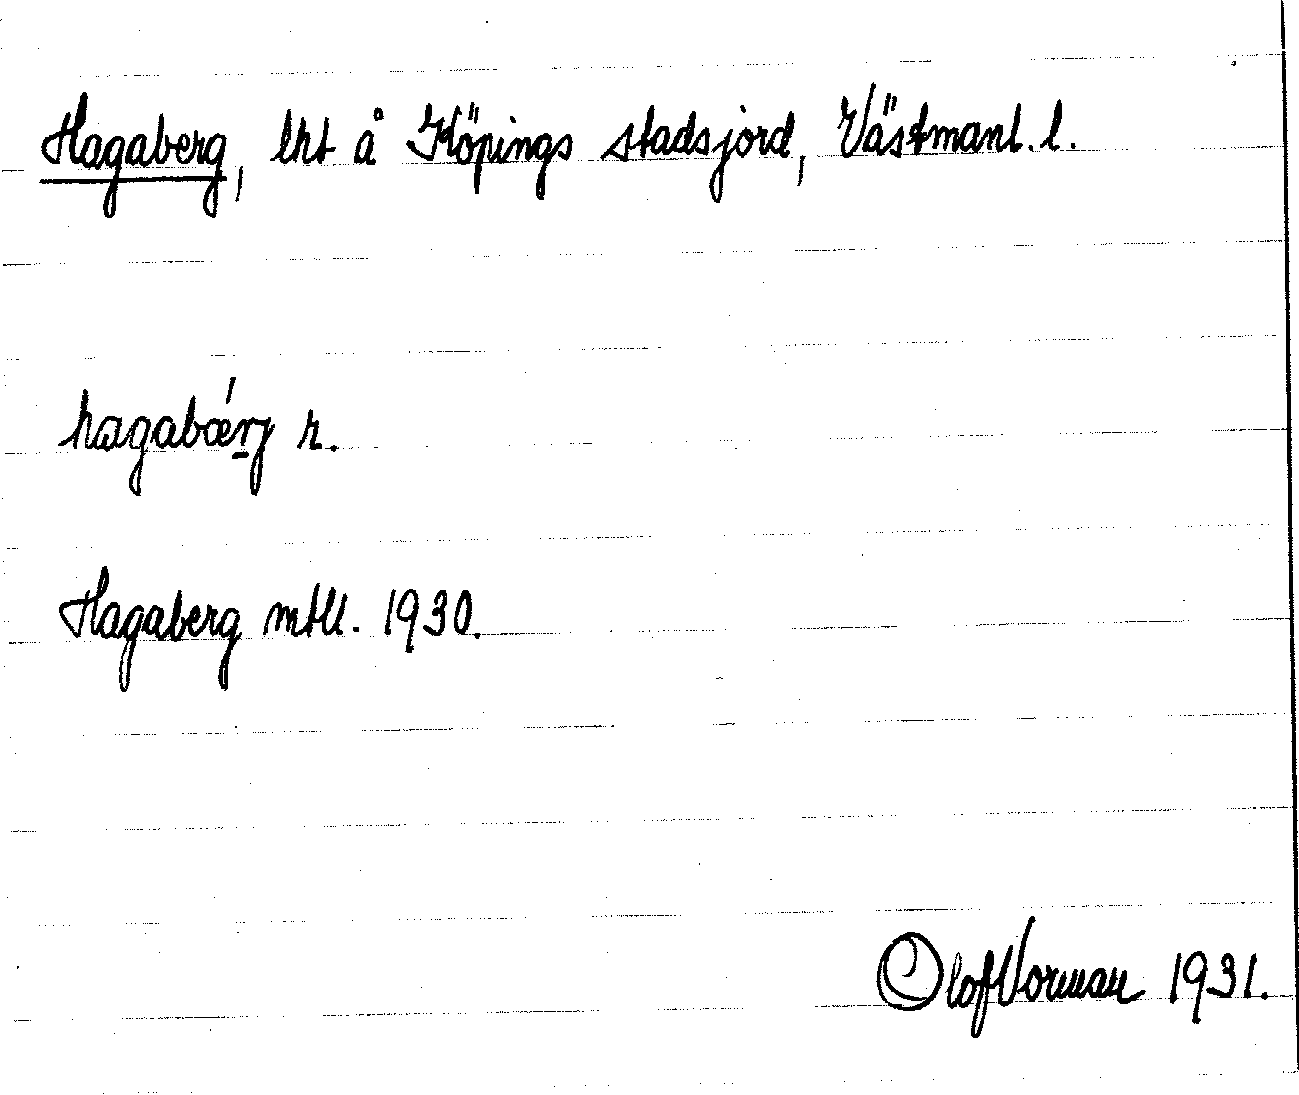 Hagaberg, lht å Köpings stadsjord, Västmanl. l.
hagabǽrj n.
Hagaberg mtll. 1930.
Olof Vorman 1931.